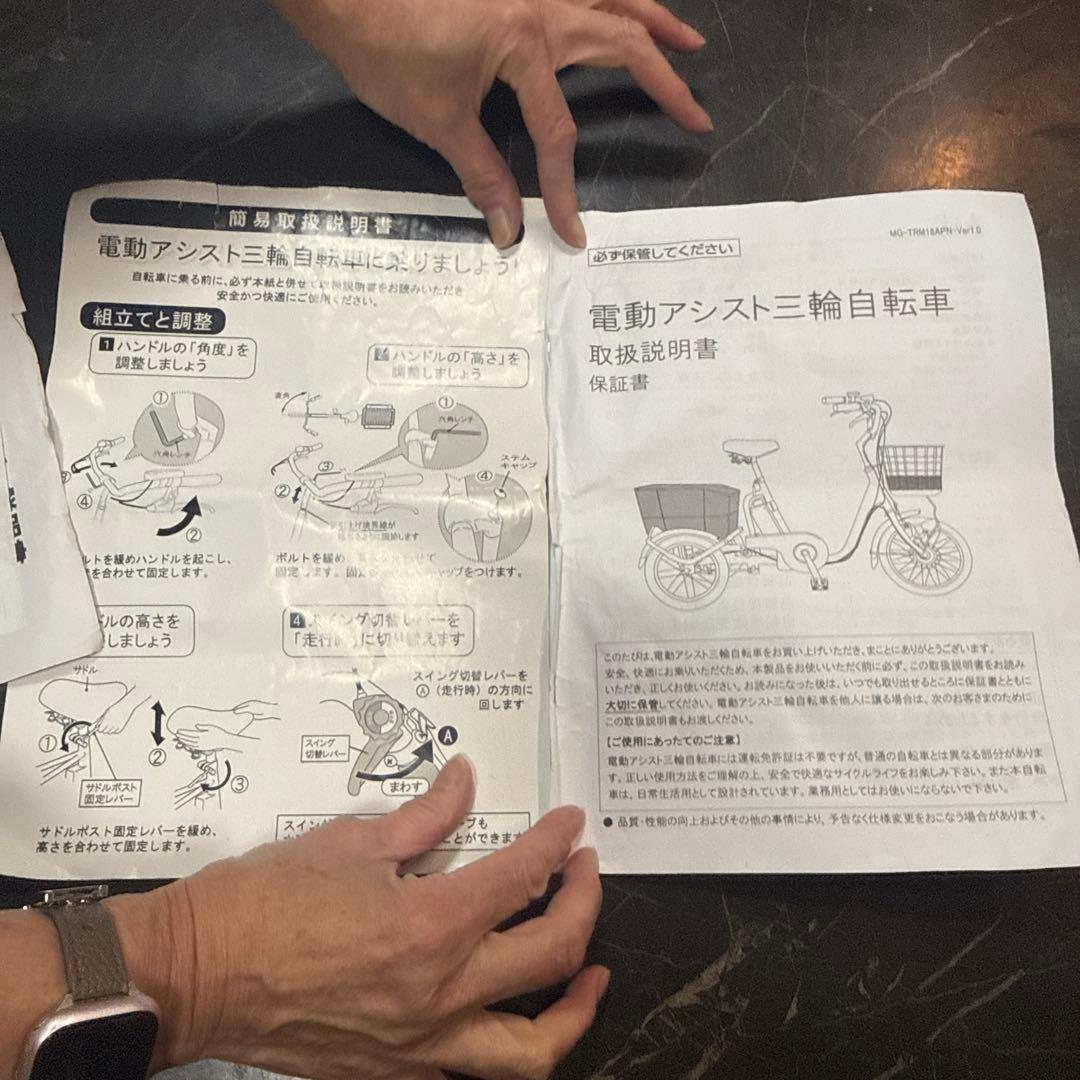 簡易取扱説明書
電動アシスト三輪自転車に乗りましょう!
自転車に乗る前に、必ず本紙と併せて取扱説明書をお読みいただき
安全かつ快適にご使用ください。
組立てと調整
1 ハンドルの「角度」を
調整しましょう
① 
六角レンチ
④
②
ルトを緩めハンドルを起こし、
を合わせて固定します。
ハンドルの「高さ」を
調整しましょう
直角
①
六角レンチ
ステム
キャップ
③
④
②
ボルトを緩め
固定します。
キャップをつけます。
ドルの高さを
しましょう
サドル
①
②
③
サドルポスト
固定レバー
サドルポスト固定レバーを緩め、
高さを合わせて固定します。
4 スイング切替レバーを
「走行時」に切り替えます
スイング切替レバーを
Ⓐ(走行時)の方向に
回します
スイング
切替レバー
A
まわす
スイン
ことができます
MG-TRM18APN-Ver1.0
必ず保管してください
電動アシスト三輪自転車
取扱説明書
保証書
このたびは、電動アシスト三輪自転車をお買い上げいただき、まことにありがとうございます。
安全、快適にお乗りいただくため、本製品をお使いいただく前に必ず、この取扱説明書をお読み
いただき、正しくお使いください。お読みになった後は、いつでも取り出せるところに保証書とともに
大切に保管してください。電動アシスト三輪自転車を他人に譲る場合は、次のお客さまのために
この取扱説明書もお渡しください。
【ご使用にあたってのご注意】
電動アシスト三輪自転車には運転免許証は不要ですが、普通の自転車とは異なる部分がありま
す。正しい使用方法をご理解の上、安全で快適なサイクルライフをお楽しみ下さい。また本自転
車は、日常生活用として設計されています。業務用としてはお使いにならないで下さい。
● 品質・性能の向上およびその他の事情により、予告なく仕様変更をおこなう場合があります。